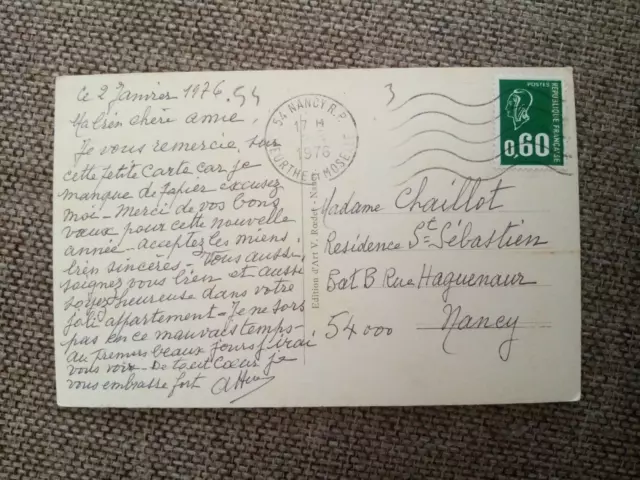 Ce 2 Janvier 1976.
Ma bien chère amie.
Je vous remercie, sur
cette petite Carte car je
manque de papier excusez
moi - Merci de vos bons
vœux pour cette nouvelle
année - acceptez les miens
bien sincères - Vous aussi
soignez vous bien et aussi
soyez heureuse dans votre
joli appartement - Je ne sors
pas par ce mauvais temps -
au premiers beaux jours j'irai
vous voir - De tout Cœur je
vous embrasse fort
Edition d'Art V. Rœder - Nancy
54 NANCY R.P.
17 H
1976
MEURTHE ET MOSELLE
3
POSTES
REPUBLIQUE FRANÇAISE
0,60
Madame Chaillot
Residence St Sébastien
Bat B Rue Haguenaur
54000 Nancy